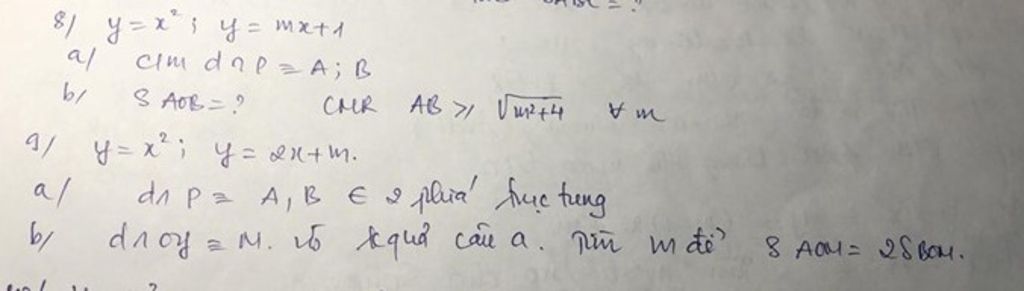 8/ y = x² ; y = mx+1
a/ c/m d ∩ P ≡ A ; B
b/ S AOB = ? CMR AB ⩾ √m²+4 ∀ m
9/ y = x² ; y = 2x+m.
a/ d ∩ P ≡ A, B ∈ 2 phía trục tung
b/ d ∩ oy ≡ M. với kquả câu a. Tìm m để S AOM = 2S BOM.